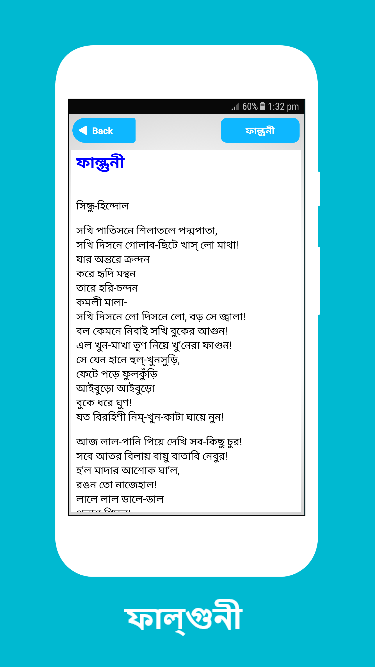 60% 1:32 pm
Back
ফাল্গুনী
ফাল্গুনী
সিন্ধু-হিন্দোল
সখি পাতিসনে শিলাতলে পদ্মপাতা,
সখি দিসনে গোলাব-ছিটে খাস্ লো মাথা!
যার অন্তরে ক্রন্দন
করে হৃদি মন্থন
তারে হরি-চন্দন
কমলী মালা-
সখি দিসনে লো দিসনে লো, বড় সে জ্বালা!
বল কেমনে নিবাই সখি বুকের আগুন!
এল খুন-মাখা তৃণ নিয়ে খু'নেরা ফাগুন!
সে যেন হানে হুল্-খুনসুড়ি,
ফেটে পড়ে ফুলকুঁড়ি
আইবুড়ো আইবুড়ো
বুকে ধরে ঘুণ!
যত বিরহিণী নিম্-খুন-কাটা ঘায়ে নুন!
আজ লাল-পানি পিয়ে দেখি সব-কিছু চুর!
সবে আতর বিলায় বায়ু বাতাবি নেবুর!
হ'ল মাদার আশোক ঘা'ল,
রঙন তো নাজেহাল!
লালে লাল ডালে-ডাল
ফাল্গুনী